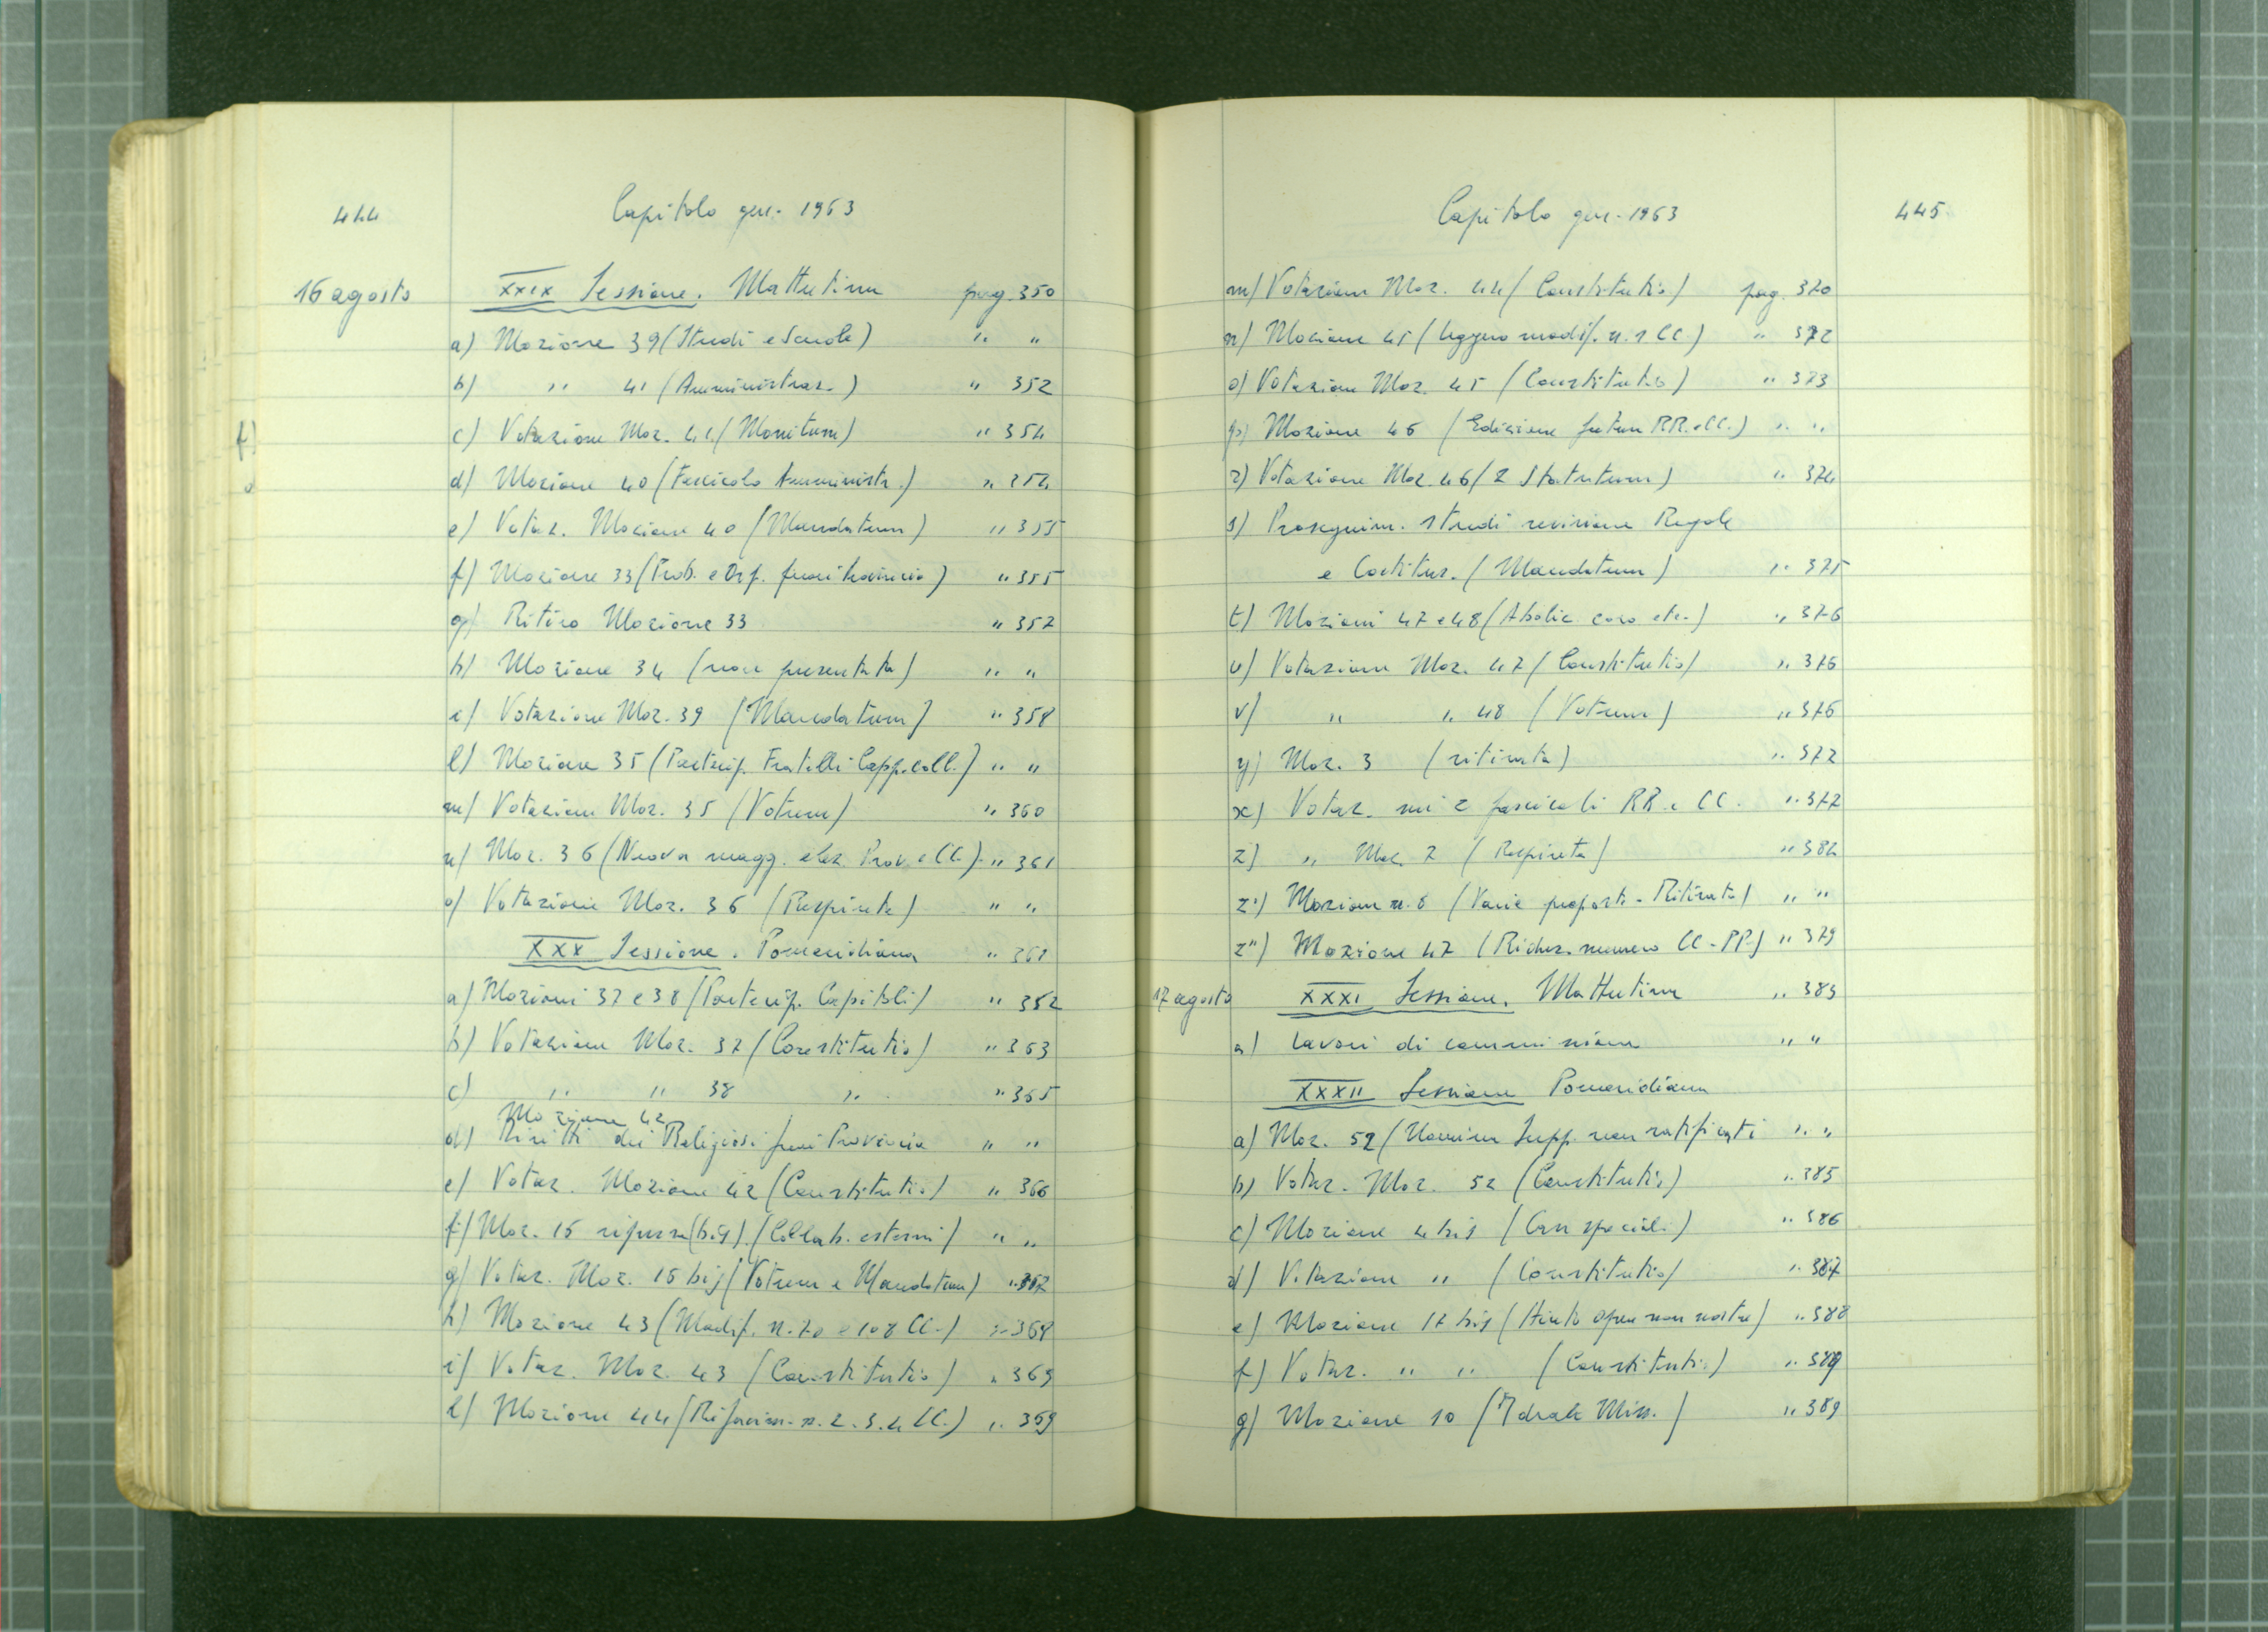 444
Capitolo gen. 1963
16 agosto
XXIX Sessione. Mattutina pag. 350
a) Mozione 39 (Studi e Scuole) " "
b) " 41 (Amministraz.) " 352
c) Votazione Moz. 41 (Monitum) " 354
d) Mozione 40 (Fascicolo Amministr.) " 354
e) Votaz. Mozione 40 (Mandatum) " 355
f) Mozione 33 (Prob. e Orf. ) " 355
g) Ritiro Mozione 33 " 357
h) Mozione 34 (non presentata) " "
i) Votazione Moz. 39 (Mandatum) " 358
l) Mozione 35 (Partecip. Fratelli Capp. coll.) " "
m) Votazione Moz. 35 (Votum) " 360
n) Moz. 36 (Nuova magg. elez. Prov. e CC.) " 361
o) Votazione Moz. 36 (Respinta) " "
XXX Sessione. Pomeridiana " 361
a) Mozioni 37 e 38 (Partecip. Capitoli) " 352
b) Votazione Moz. 37 (Constitutio) " 363
c) " " 38 " " 365
Mozione 42
d) Diritti dei Religiosi fuori Provincia " "
e) Votaz. Mozione 42 (Constitutio) " 366
f) Moz. 15 (bis) (Collab. esterni) " "
g) Votaz. Moz. 15 bis (Votum e Mandatum) " 367
h) Mozione 43 (Modif. n. 70 e 108 CC.) " 368
i) Votaz. Moz. 43 (Constitutio) " 369
l) Mozione 44 (Rifacim. n. 2. 3. 4 CC.) " 369
Capitolo gen. 1963
445
m) Votazione Moz. 44 (Constitutio) pag. 370
n) Mozione 45 (leggera modif. n. 1 CC.) " 372
o) Votazione Moz. 45 (Constitutio) " 373
p) Mozione 46 (Edizione futura RR. e CC.) " "
r) Votazione Moz. 46 (2 Statutum) " 374
s) Proseguim. studi revisione Regole
e Costituz. (Mandatum) " 375
t) Mozioni 47 e 48 (Aboliz. coro etc.) " 376
u) Votazione Moz. 47 (Constitutio) " 376
v) " " 48 (Votum) " 376
y) Moz. 3 (ritirata) " 377
x) Votaz. sui 2 fascicoli RR. e CC. " 377
z) " Moz. 7 (Respinta) " 382
z') Mozione n. 8 (Varie proposte - Ritirata) " "
z") Mozione 47 (Riduz. numero CC. PP.) " 379
17 agosto
XXXI Sessione. Mattutina " 383
a) Lavori di commissione " "
XXXII Sessione Pomeridiana
a) Moz. 52 (Nomina Supp. non ratificati " "
b) Votaz. Moz. 52 (Constitutio) " 385
c) Mozione 4 bis (Casi speciali) " 386
d) Votazione " (Constitutio) " 387
e) Mozione 17 bis (Aiuto opere non nostre) " 388
f) Votaz. " " (Constitutio) " 389
g) Mozione 10 ( Miss.) " 389